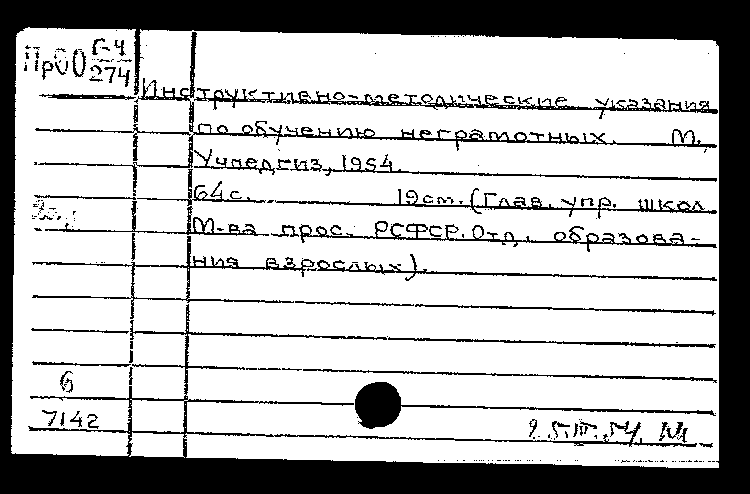 ПрОО Г-4/274
Инструктивно-методические указания
по обучению неграмотных. М.,
Учпедгиз, 1954.
64с. 19см. (Глав. упр. школ
М-ва прос. РСФСР. Отд. образова-
ния взрослых).
6
7142
25.III.54.